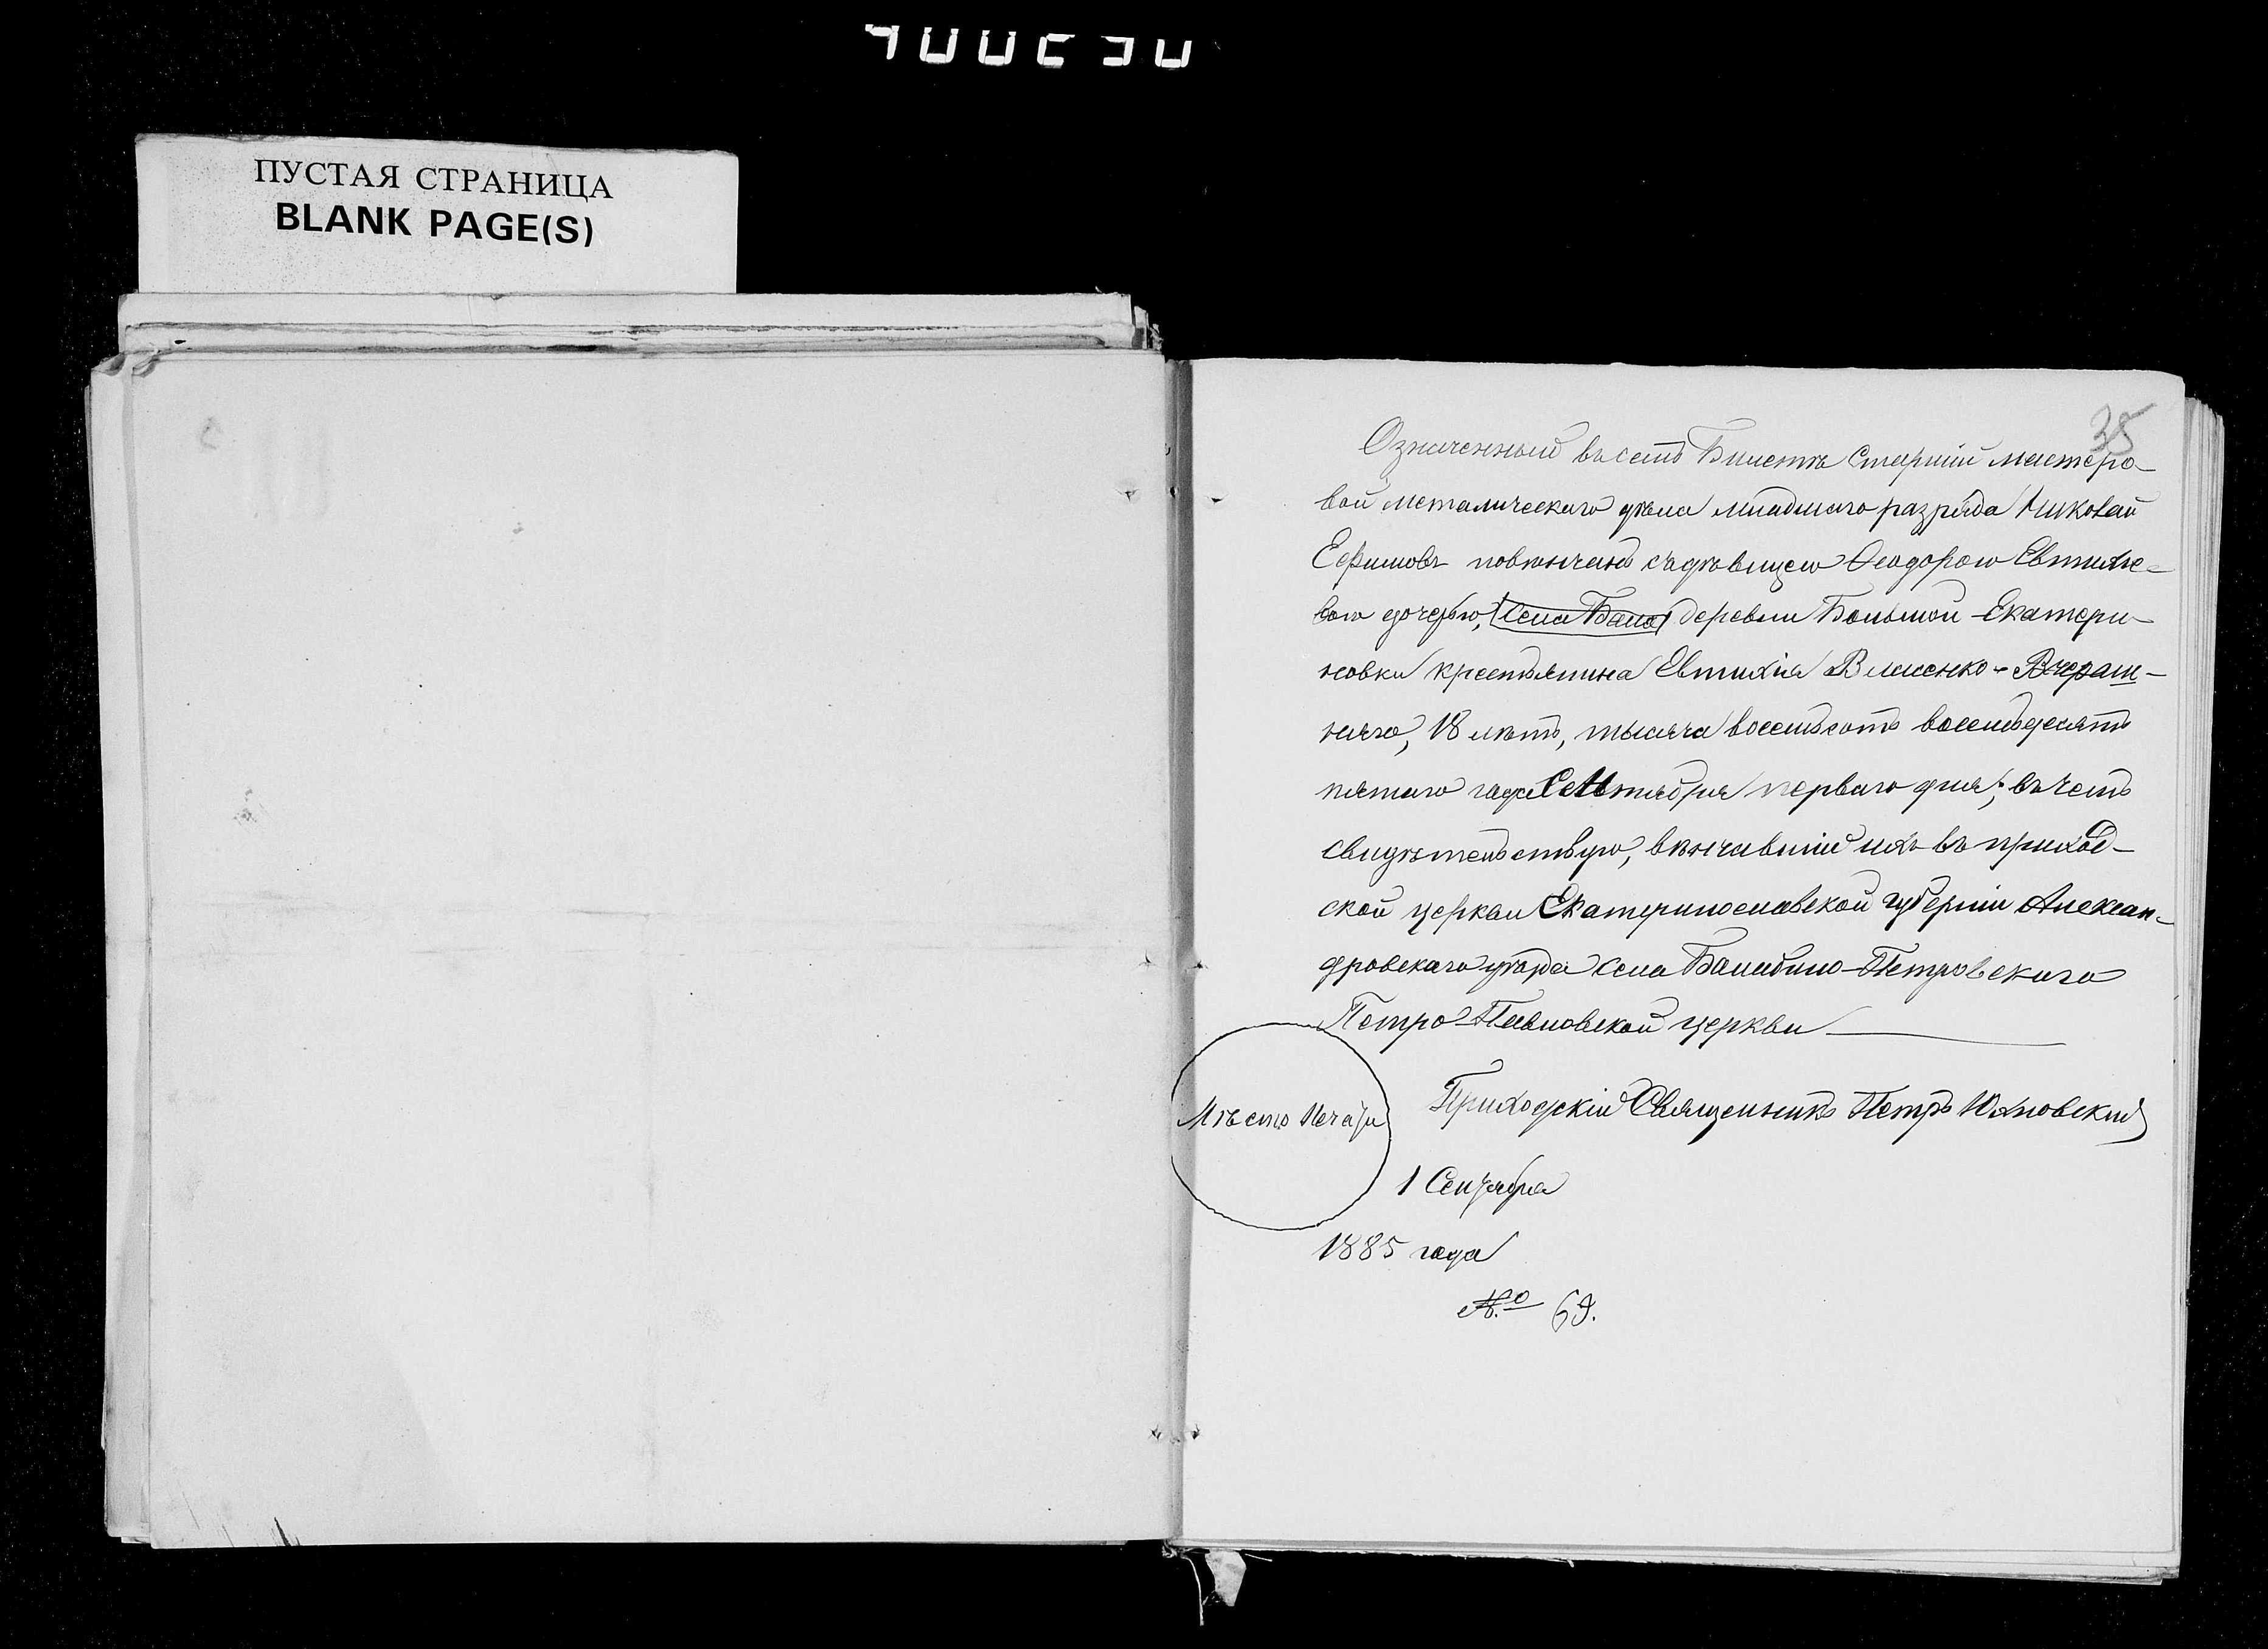 ПУСТАЯ СТРАНИЦА
BLANK PAGE(S)
35
Означенный въ семъ Билетѣ Старшій мастеро-
вой металическаго цѣха младшаго разряда Николай
Ефимовъ повѣнчанъ съ дѣвицею Ѳеодорою Евтихіе-
вою дочерью, села Бала деревни Большой-Екатери-
новки крестьянина Евтихія Власенко-Вчераш-
няго, 18 лѣтъ, тысяча восемьсотъ восемьдесятъ
пятаго года Сентября перваго дня; въ чемъ
свидѣтельствую, вѣнчавшій ихъ въ приход-
ской церкви Екатеринославской губерніи Алексан-
дровскаго уѣзда села Балабино-Петровскаго
Петро-Павловской церкви
Мѣсто Печати
Приходскій Священникъ Петръ Юхновскій
1 Сентября
1885 года
№ 69.